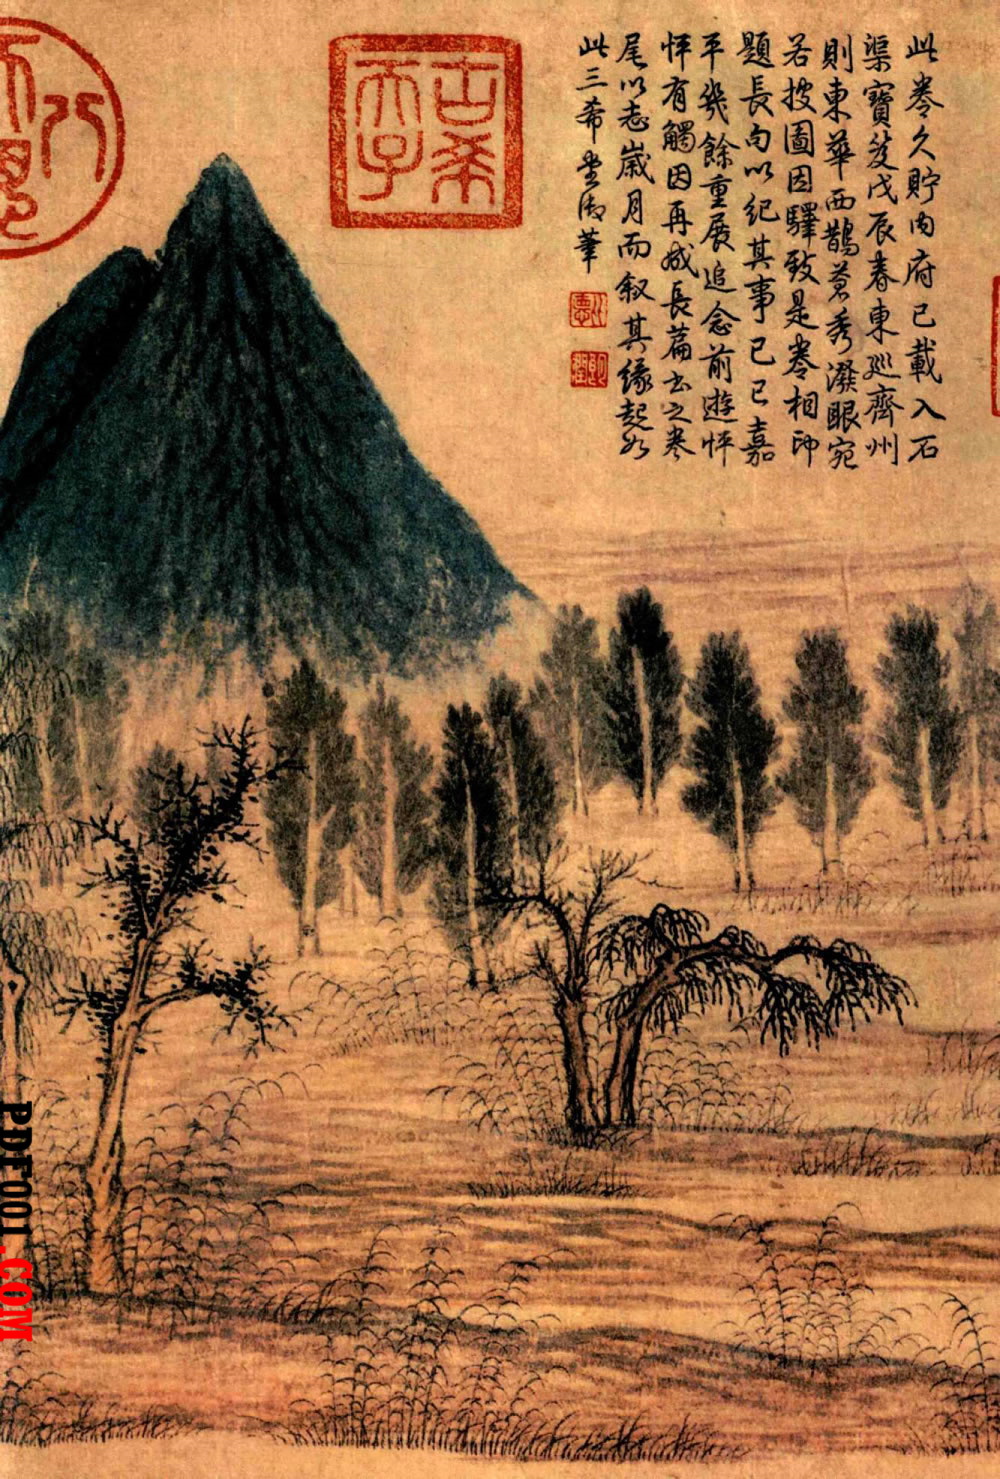 此卷久貯內府已載入石
渠寶笈戊辰春東巡齊州
則東華西鵲蒼秀潑眼宛
若披圖因驛致是卷相印
題長句以紀其事己巳嘉
平幾餘重展追念前遊怦
怦有觸因再成長篇書之卷
尾以志歲月而叙其緣起如
此三希堂御筆
古希
天子
八
PDF001.COM